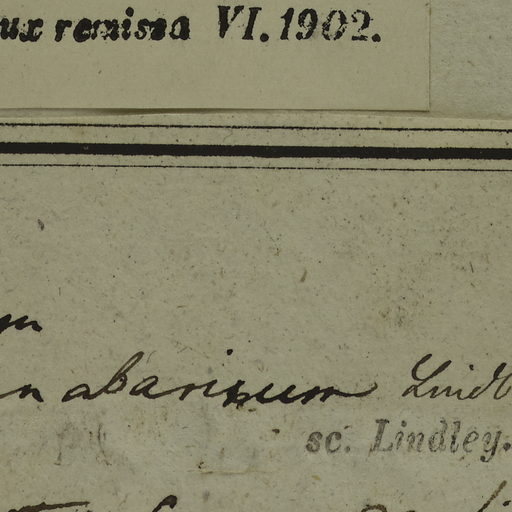 ux remissa VI. 1902.
m
n abarinum Lindl
sc. Lindley.